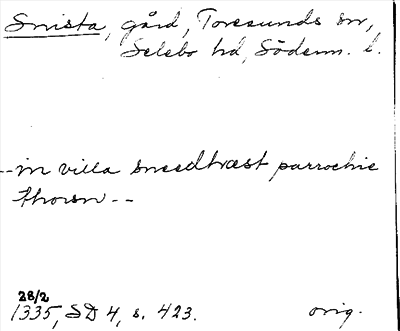 Snista, gård, Toresunds sn,
Selebo hd, Söderm. l.
--in villa sneedhwst parrochie
thorsn--
28/2
1335, SD 4, s. 423. orig.